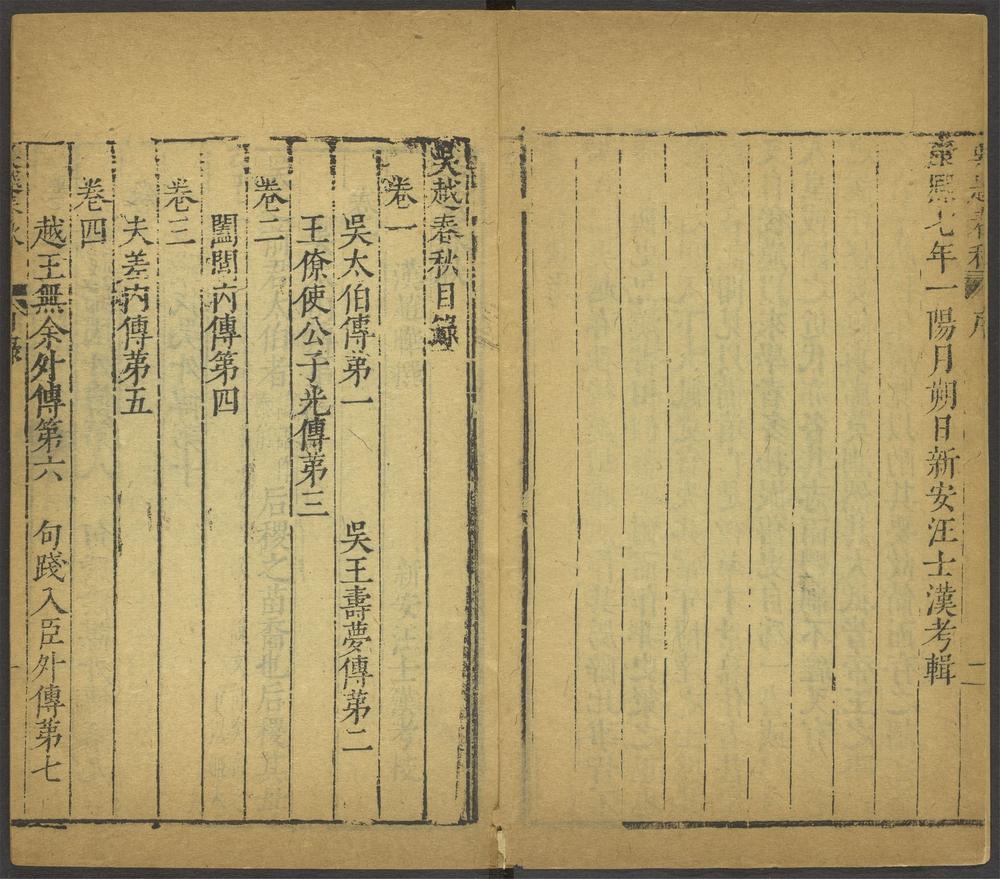 吳越春秋 序 二
康熙七年一陽月朔日新安汪士漢考輯
吳越春秋目錄
卷一
吳太伯傳苐一 吳王壽夢傳苐二
王僚使公子光傳苐三
卷二
闔閭內傳第四
卷三
夫差內傳苐五
卷四
越王無余外傳第六 句踐入臣外傳苐七
吳越春秋 目錄 一